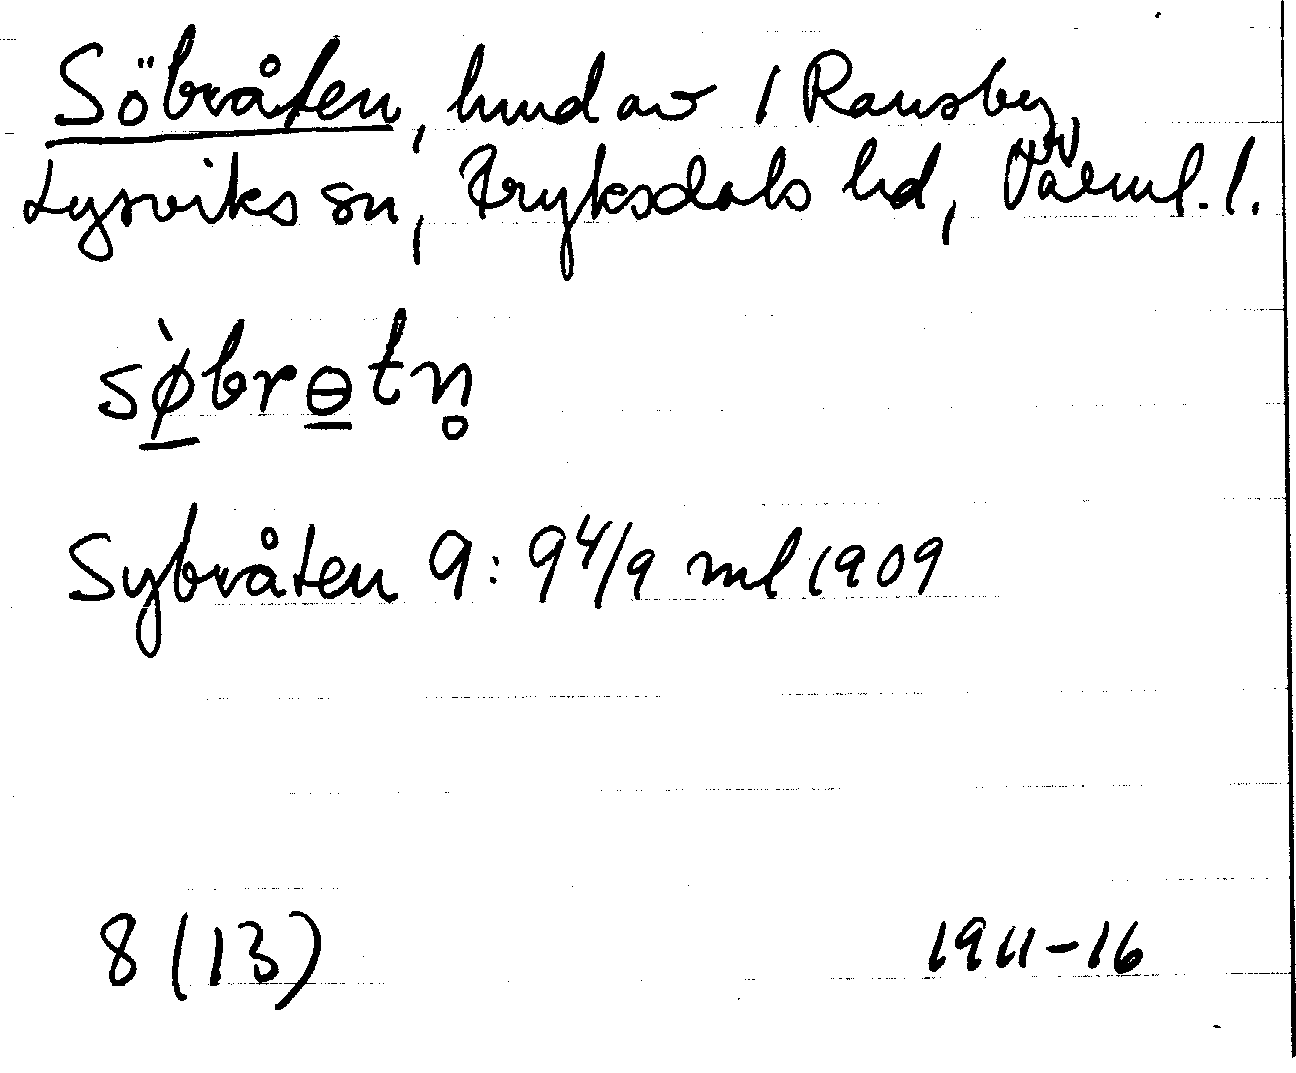 Söbråten, lund av 1 Ransby,
Lysviks sn, Fryksdals hd, Värml. l.
sø̲̀brɵ̲tn̥
Sybråten 9: 9 4/9 ml 1909
8 (13) 1911-16